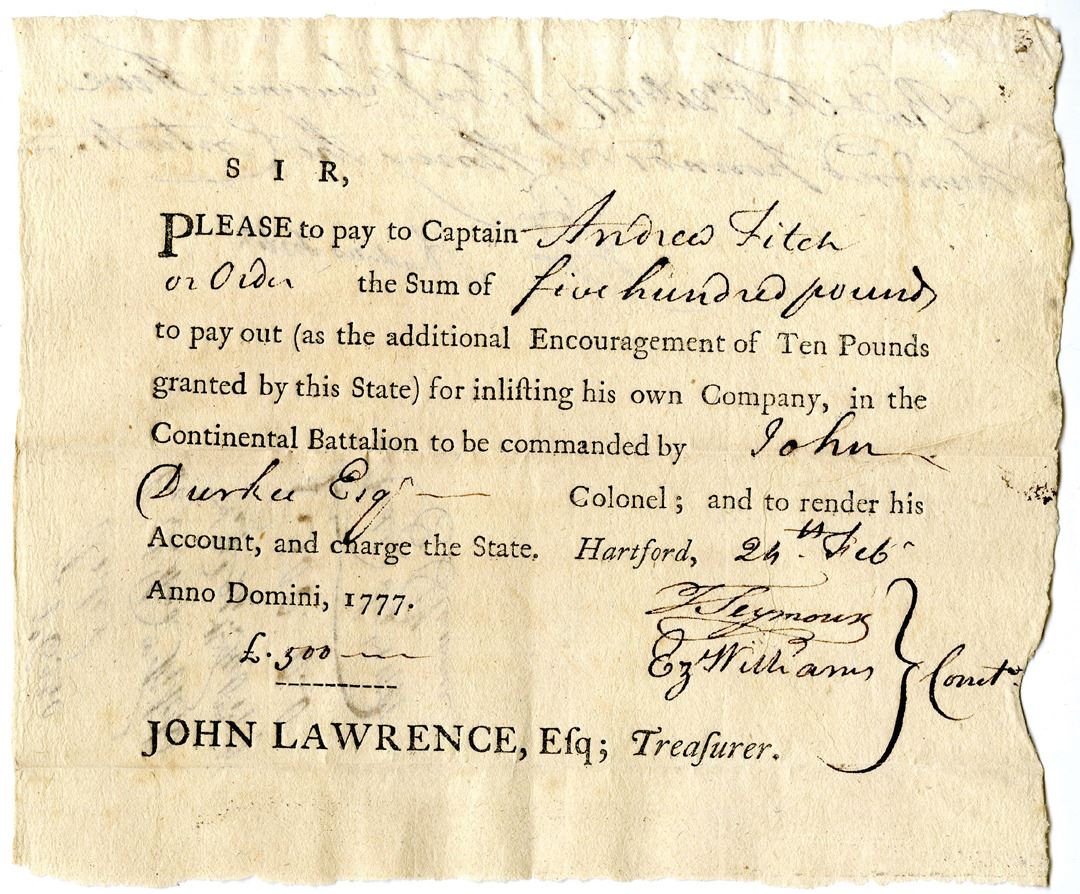 S I R,
PLEASE to pay to Captain Andrew Fitch
or Order the Sum of five hundred pounds
to pay out (as the additional Encouragement of Ten Pounds
granted by this State) for inliſting his own Company, in the
Continental Battalion to be commanded by John
Durkee Esqr Colonel; and to render his
Account, and charge the State. Hartford, 24th. Feby
Anno Domini, 1777.
T Seymour
£. 500
Ezl Williams
Comtee
JOHN LAWRENCE, Eſq; Treaſurer.